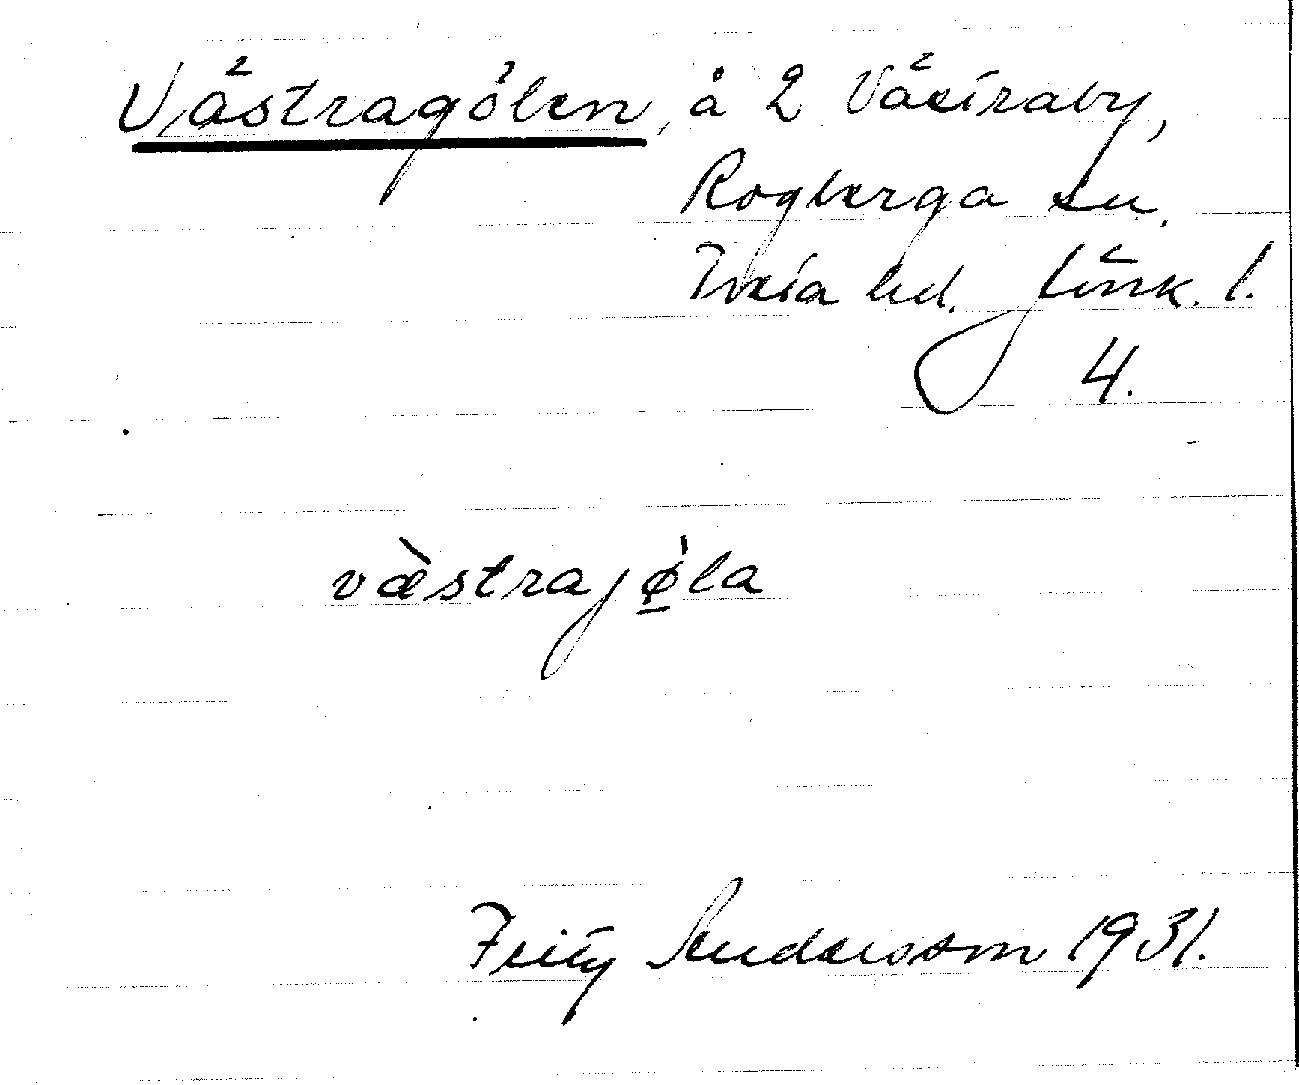 Västragölen, å 2 Västraby,
Rogberga sn.
Tveta hd. Jönk. l.
4.
væ̀strajø̠̀la
Fritz Andersson 1931.